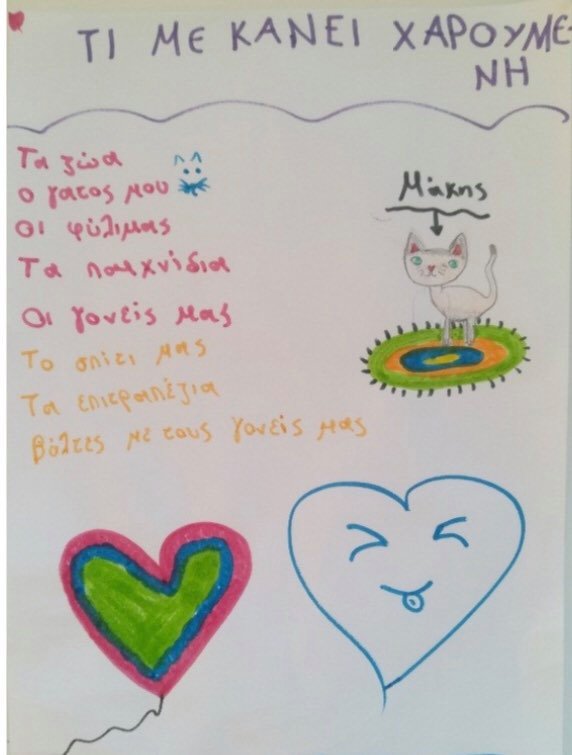 ΤΙ ΜΕ ΚΑΝΕΙ ΧΑΡΟΥΜΕ-
ΝΗ
Τα ζώα
ο γατος μου
οι φύλιμας
Τα παιχνίδια
Οι γονείς μας
Το σπίτι μας
Τα επιτραπέζια
βόλτες με τους γονείς μας
Μάκης